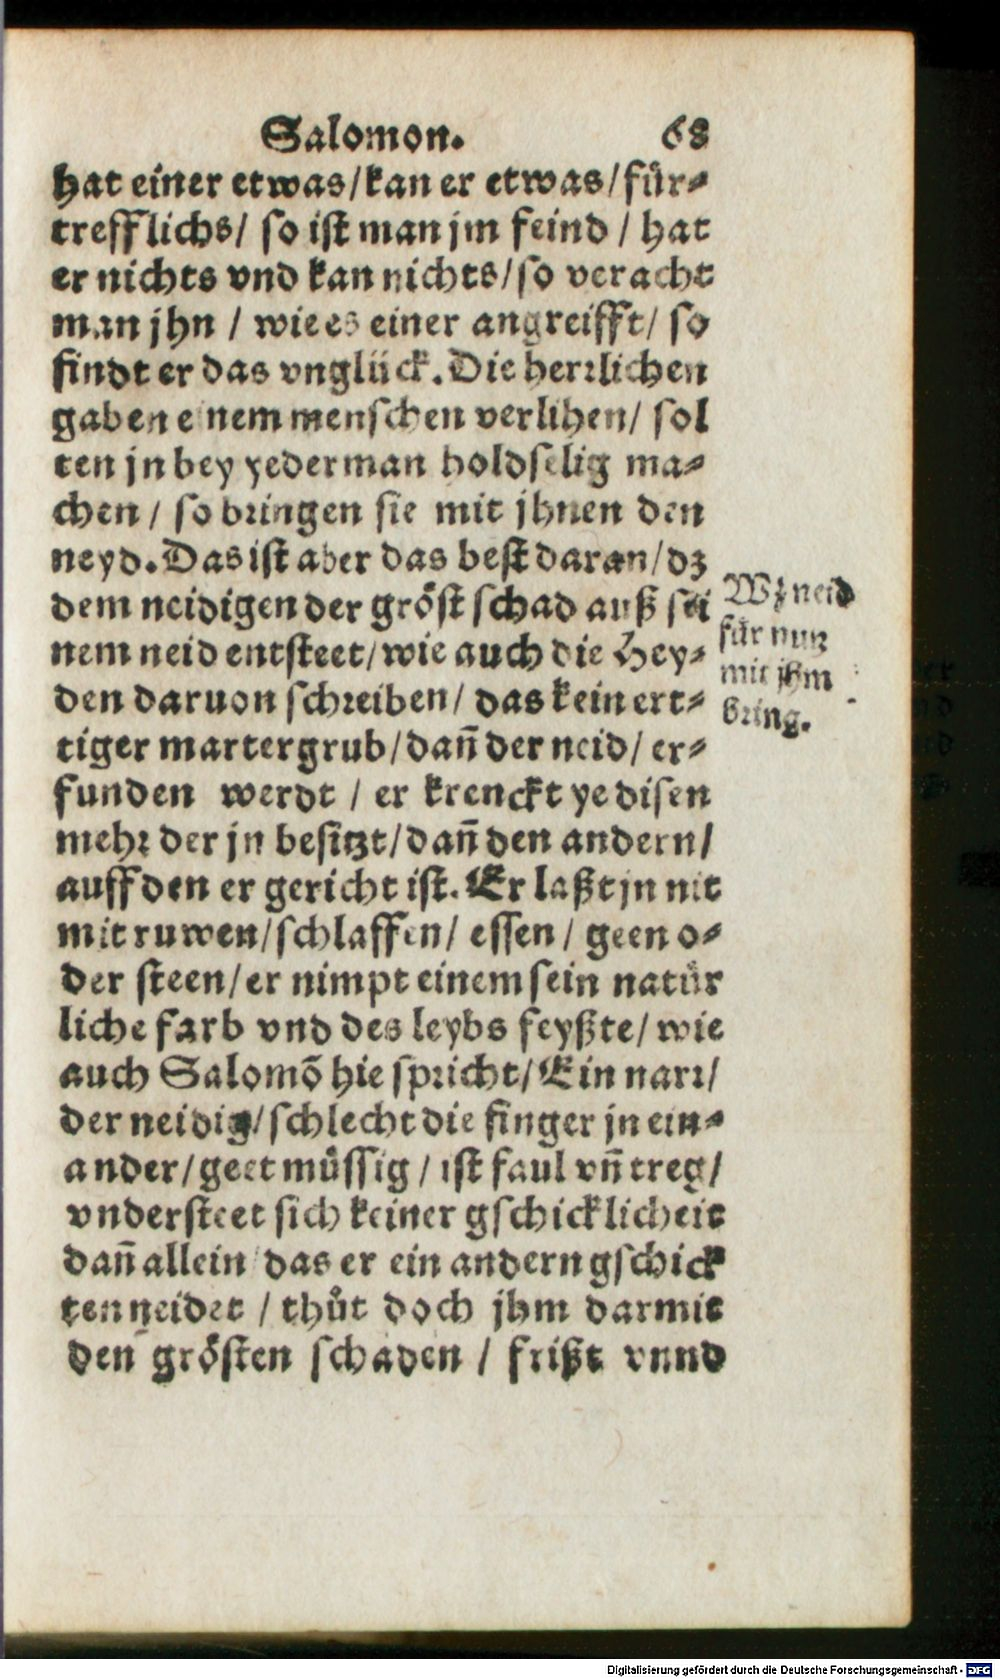 Salomon. 68
hat einer etwas/kan er etwas/für⸗
trefflichs/ so ist man jm feind / hat
er nichts vnd kan nichts/so veracht
man jhn / wie es einer angreifft/ so
findt er das vnglück. Die herrlichen
gaben einem menschen verlihen/ sol
ten jn bey yederman holdselig ma⸗
chen / so bringen sie mit jhnen den
neyd. Das ist aber das best daran/ dz
dem neidigen der gröst schad auß sei
nem neid entsteet/ wie auch die Hey⸗
den daruon schreiben/ das kein ert⸗
tiger martergrub/ dañ der neid/ er⸗
funden werdt / er krenckt ye disen
mehr der jn besitzt/ dañ den andern/
auff den er gericht ist. Er laßt jn nit
mit ruwen/schlaffen/ essen / geen o⸗
der steen/ er nimpt einem sein natür
liche farb vnd des leybs feyßte/ wie
auch Salomō hie spricht/ Ein narr/
der neidig/ schlecht die finger jn ein⸗
ander/ geet müssig / ist faul vñ treg/
vndersteet sich keiner gschicklicheit
dañ allein das er ein andern gschick
ten neidet / thůt doch jhm darmit
den grösten schaden / frißt vnnd
Wz neid
für nutz
mit jhm
bring.
Digitalisierung gefördert durch die Deutsche Forschungsgemeinschaft - DFG